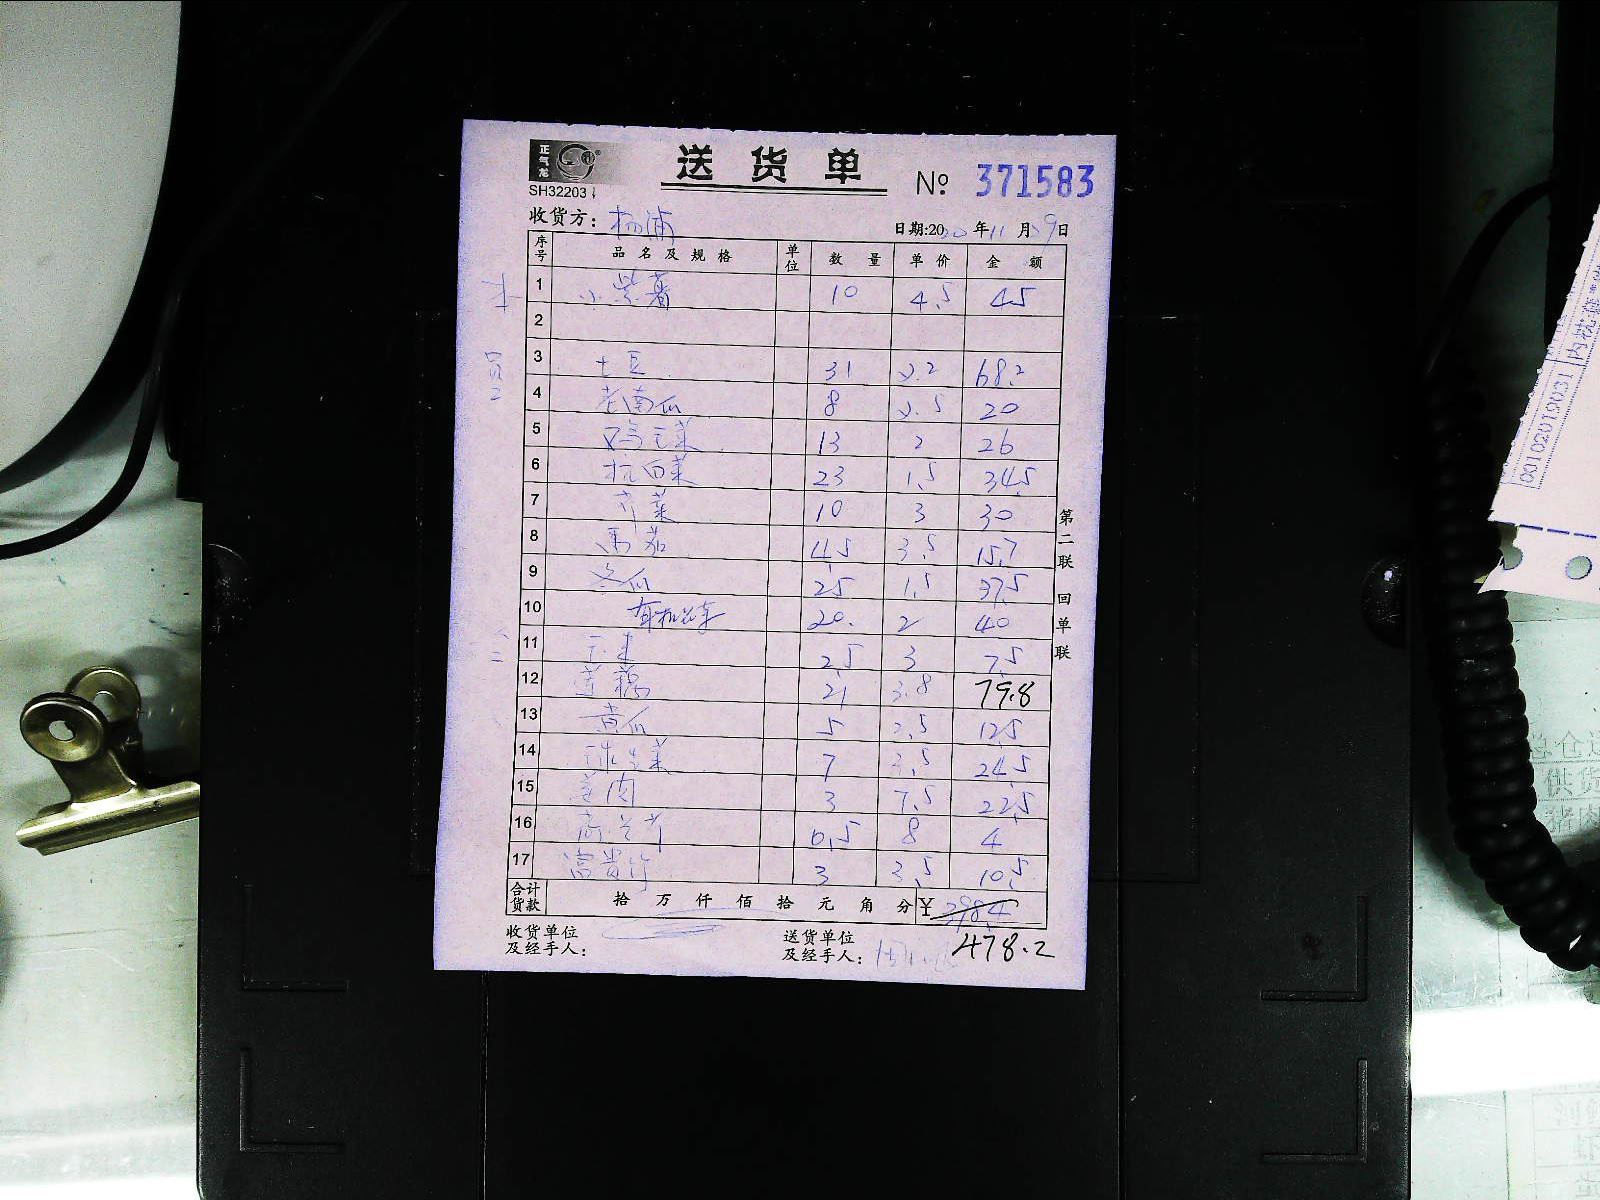 正气龙
送货单
№ 371583
SH32203
收货方: 杨浦
日期:2020年11月9日
序号 品名及规格 单位 数量 单价 金额
1 小紫薯 10 4.5 45
2
3 土豆 31 2.2 68.2
4 老南瓜 8 2.5 20
5 鸡毛菜 13 2 26
6 杭白菜 23 1.5 34.5
7 芹菜 10 3 30
8 番茄 4.5 3.5 15.7
9 冬瓜 25 1.5 37.5
10 有机花菜 20. 2 40
11 2.5 3 7.5
12 莲藕 21 3.8 79.8
13 黄瓜 5 2.5 12.5
14 球生菜 7 3.5 24.5
15 姜肉 3 7.5 22.5
16 0.5 8 4
17 富贵竹 3 3.5 10.5
合计货款 拾 万 仟 佰 拾 元 角 分 ¥ 398.4
478.2
收货单位及经手人:
送货单位及经手人:
第二联 回单联
00102019031
供货